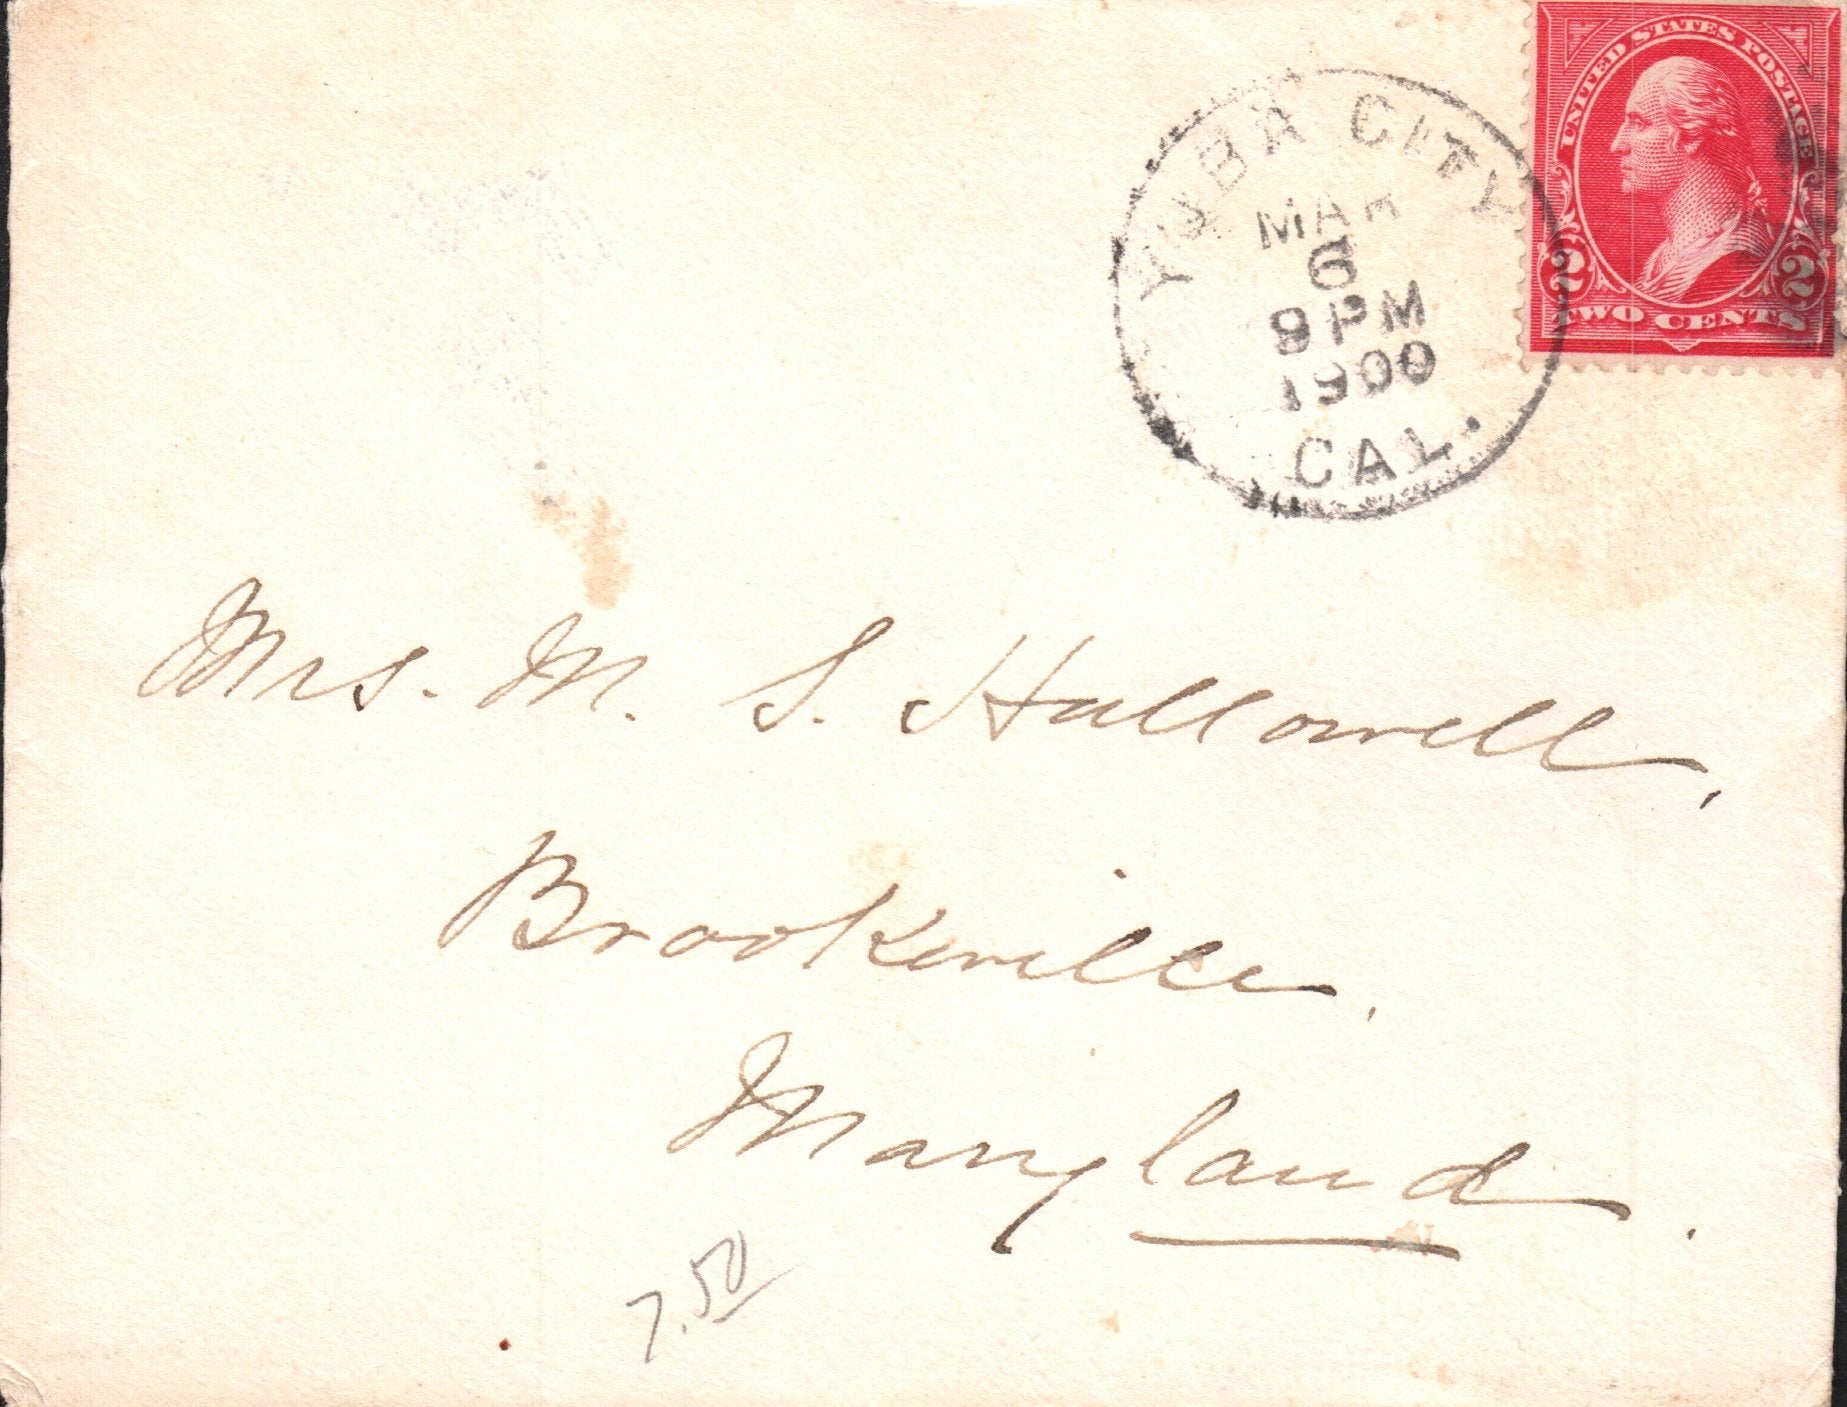 UNITED STATES POSTAGE
2 2
TWO CENTS
YUBA CITY
MAR
6
9 PM
1900
CAL.
Mrs. M. S. Hallowell,
Brookville,
Maryland.
7.50